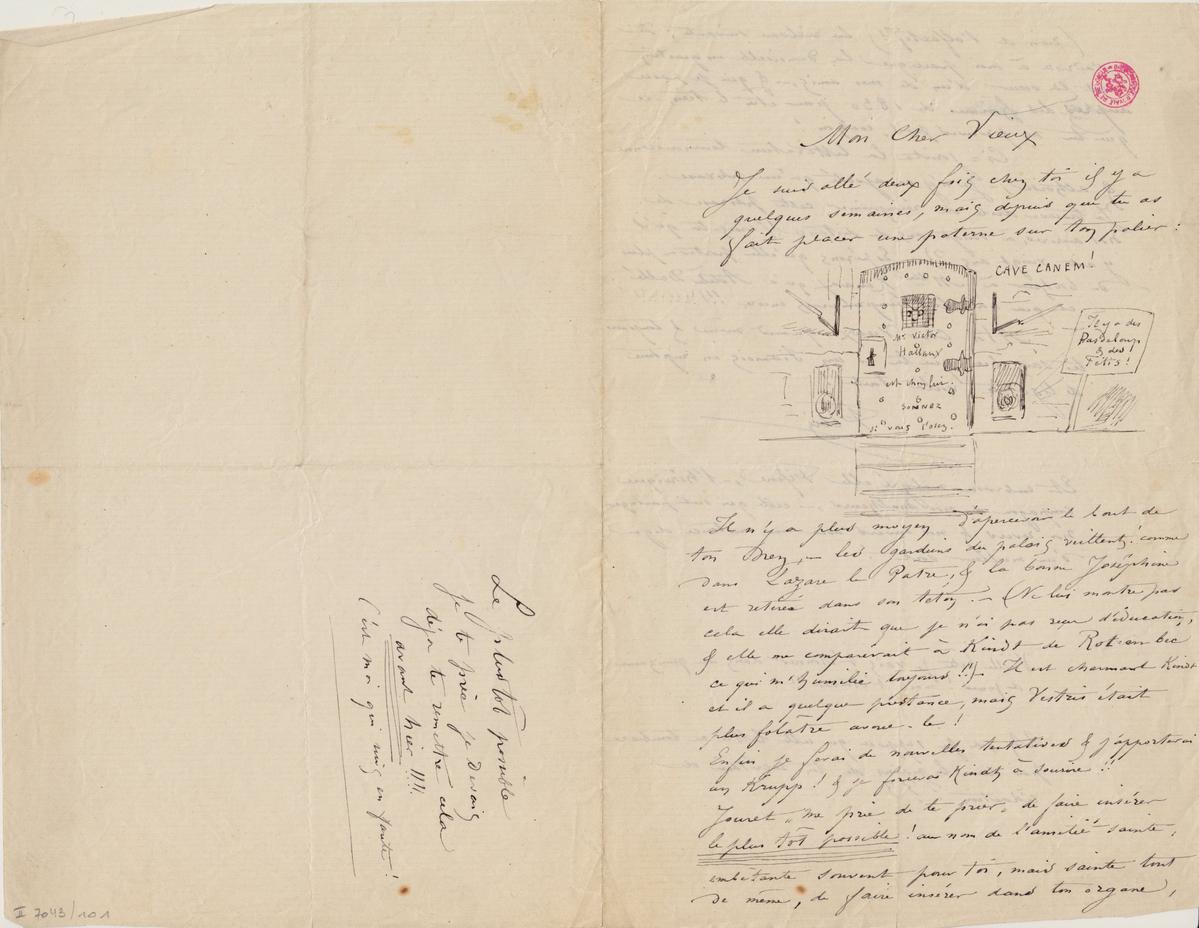 Mon Cher Vieux
Je suis allé deux fois chez toi il y a
quelques semaines, mais depuis que tu as
fait placer une poterne sur ton palier :
CAVE CANEM!
Mr Victor
Hallaux
est chez lui.
SONNEZ
si vous l'osez.
Il y a des
Pasdeloup
& des
Fétis!
Il n'y a plus moyen d'apercevoir le bout de
ton nez, les gardiens du palais veillent! comme
dans Lazare le Patre, & la bonne Joséphine
est retirée dans son . — (Ne lui montre pas
cela elle dirait que je n'ai pas reçu d'éducation,
& elle me comparerait à Kindt de
ce qui m'humilie toujours!!) — Il est charmant Kindt
et il a quelque prestance, mais Vestris était
plus folâtre avoue-le!
Enfin je ferai de nouvelles tentatives & j'apporterai
un Krupp! & je forcerai Kindt à sourire!!
Jouret "me prie de te prier" de faire insérer
le plus tôt possible! au nom de l'amitié sainte,
embêtante souvent pour toi, mais sainte tout
de même, de faire insérer dans ton organe,
Le plus tôt possible
je t'en prie je devais
déjà te remettre cela
avant hier!!!!
C'est moi qui suis en faute!
II 7043/101